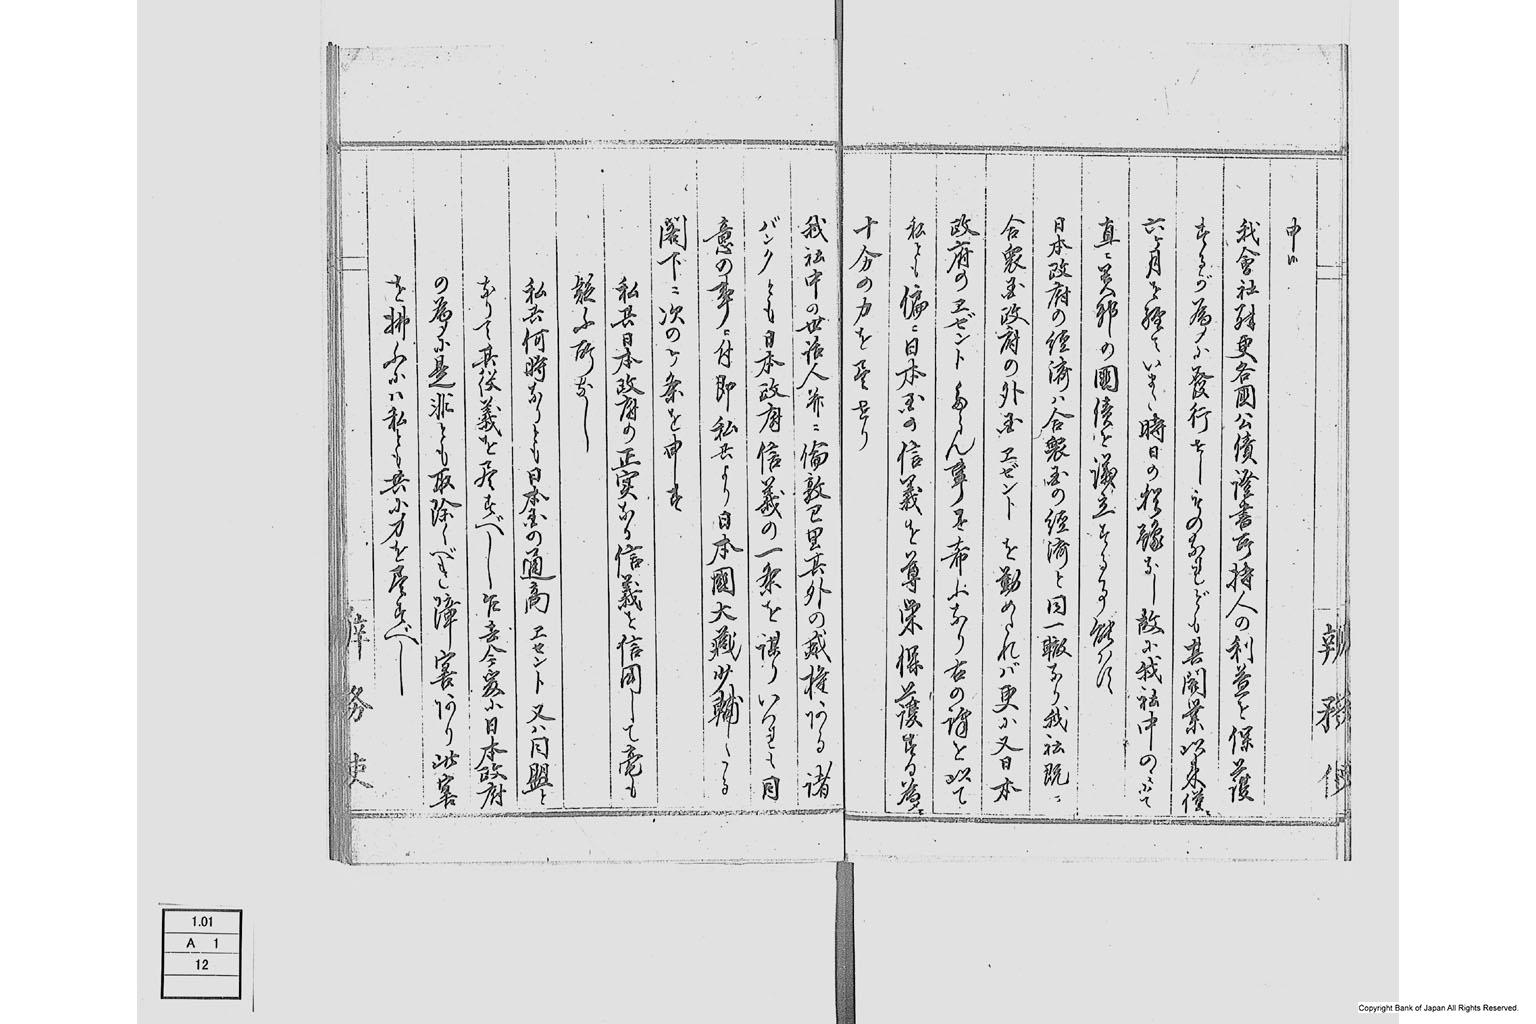 申候
我會社殊更各國公債證書所持人の利益を保護
するが為めに發行せしものなれども其開業以来僅に
六ヶ月を経ていまだ時日の猶豫なし故に我社中の
直に其邦の國債を議立する事能はす
日本政府の經済は合衆国の經済と同一轍なり我社既に
合衆国政府の外国ヱゼントを勤めたれバ更に又日本
政府のヱゼントたらん事を希ふなり右の譯を以て
私とも偏に日本国の信義を尊栄保護する為に
十分の力を尽せり
我社中の世話人并に倫敦巴里其外の威権ある諸
バンクとも日本政府信義の一条を謀りいつれも同
意の事に付即私共より日本國大藏少輔たる
閣下に次のケ条を申す
私共日本政府の正実なる信義を信固して毫も
疑ふ所なし
私共何時なりとも日本国の通商ヱセント又は同盟と
なりて其役義を尽すべし乍去今爰に日本政府
の為めに是非とも取除くべき障害あり此害
を拂ふには私とも共に力を尽すべし
辨務使
辨務使
1.01
A 1
12
Copyright Bank of Japan All Rights Reserved.